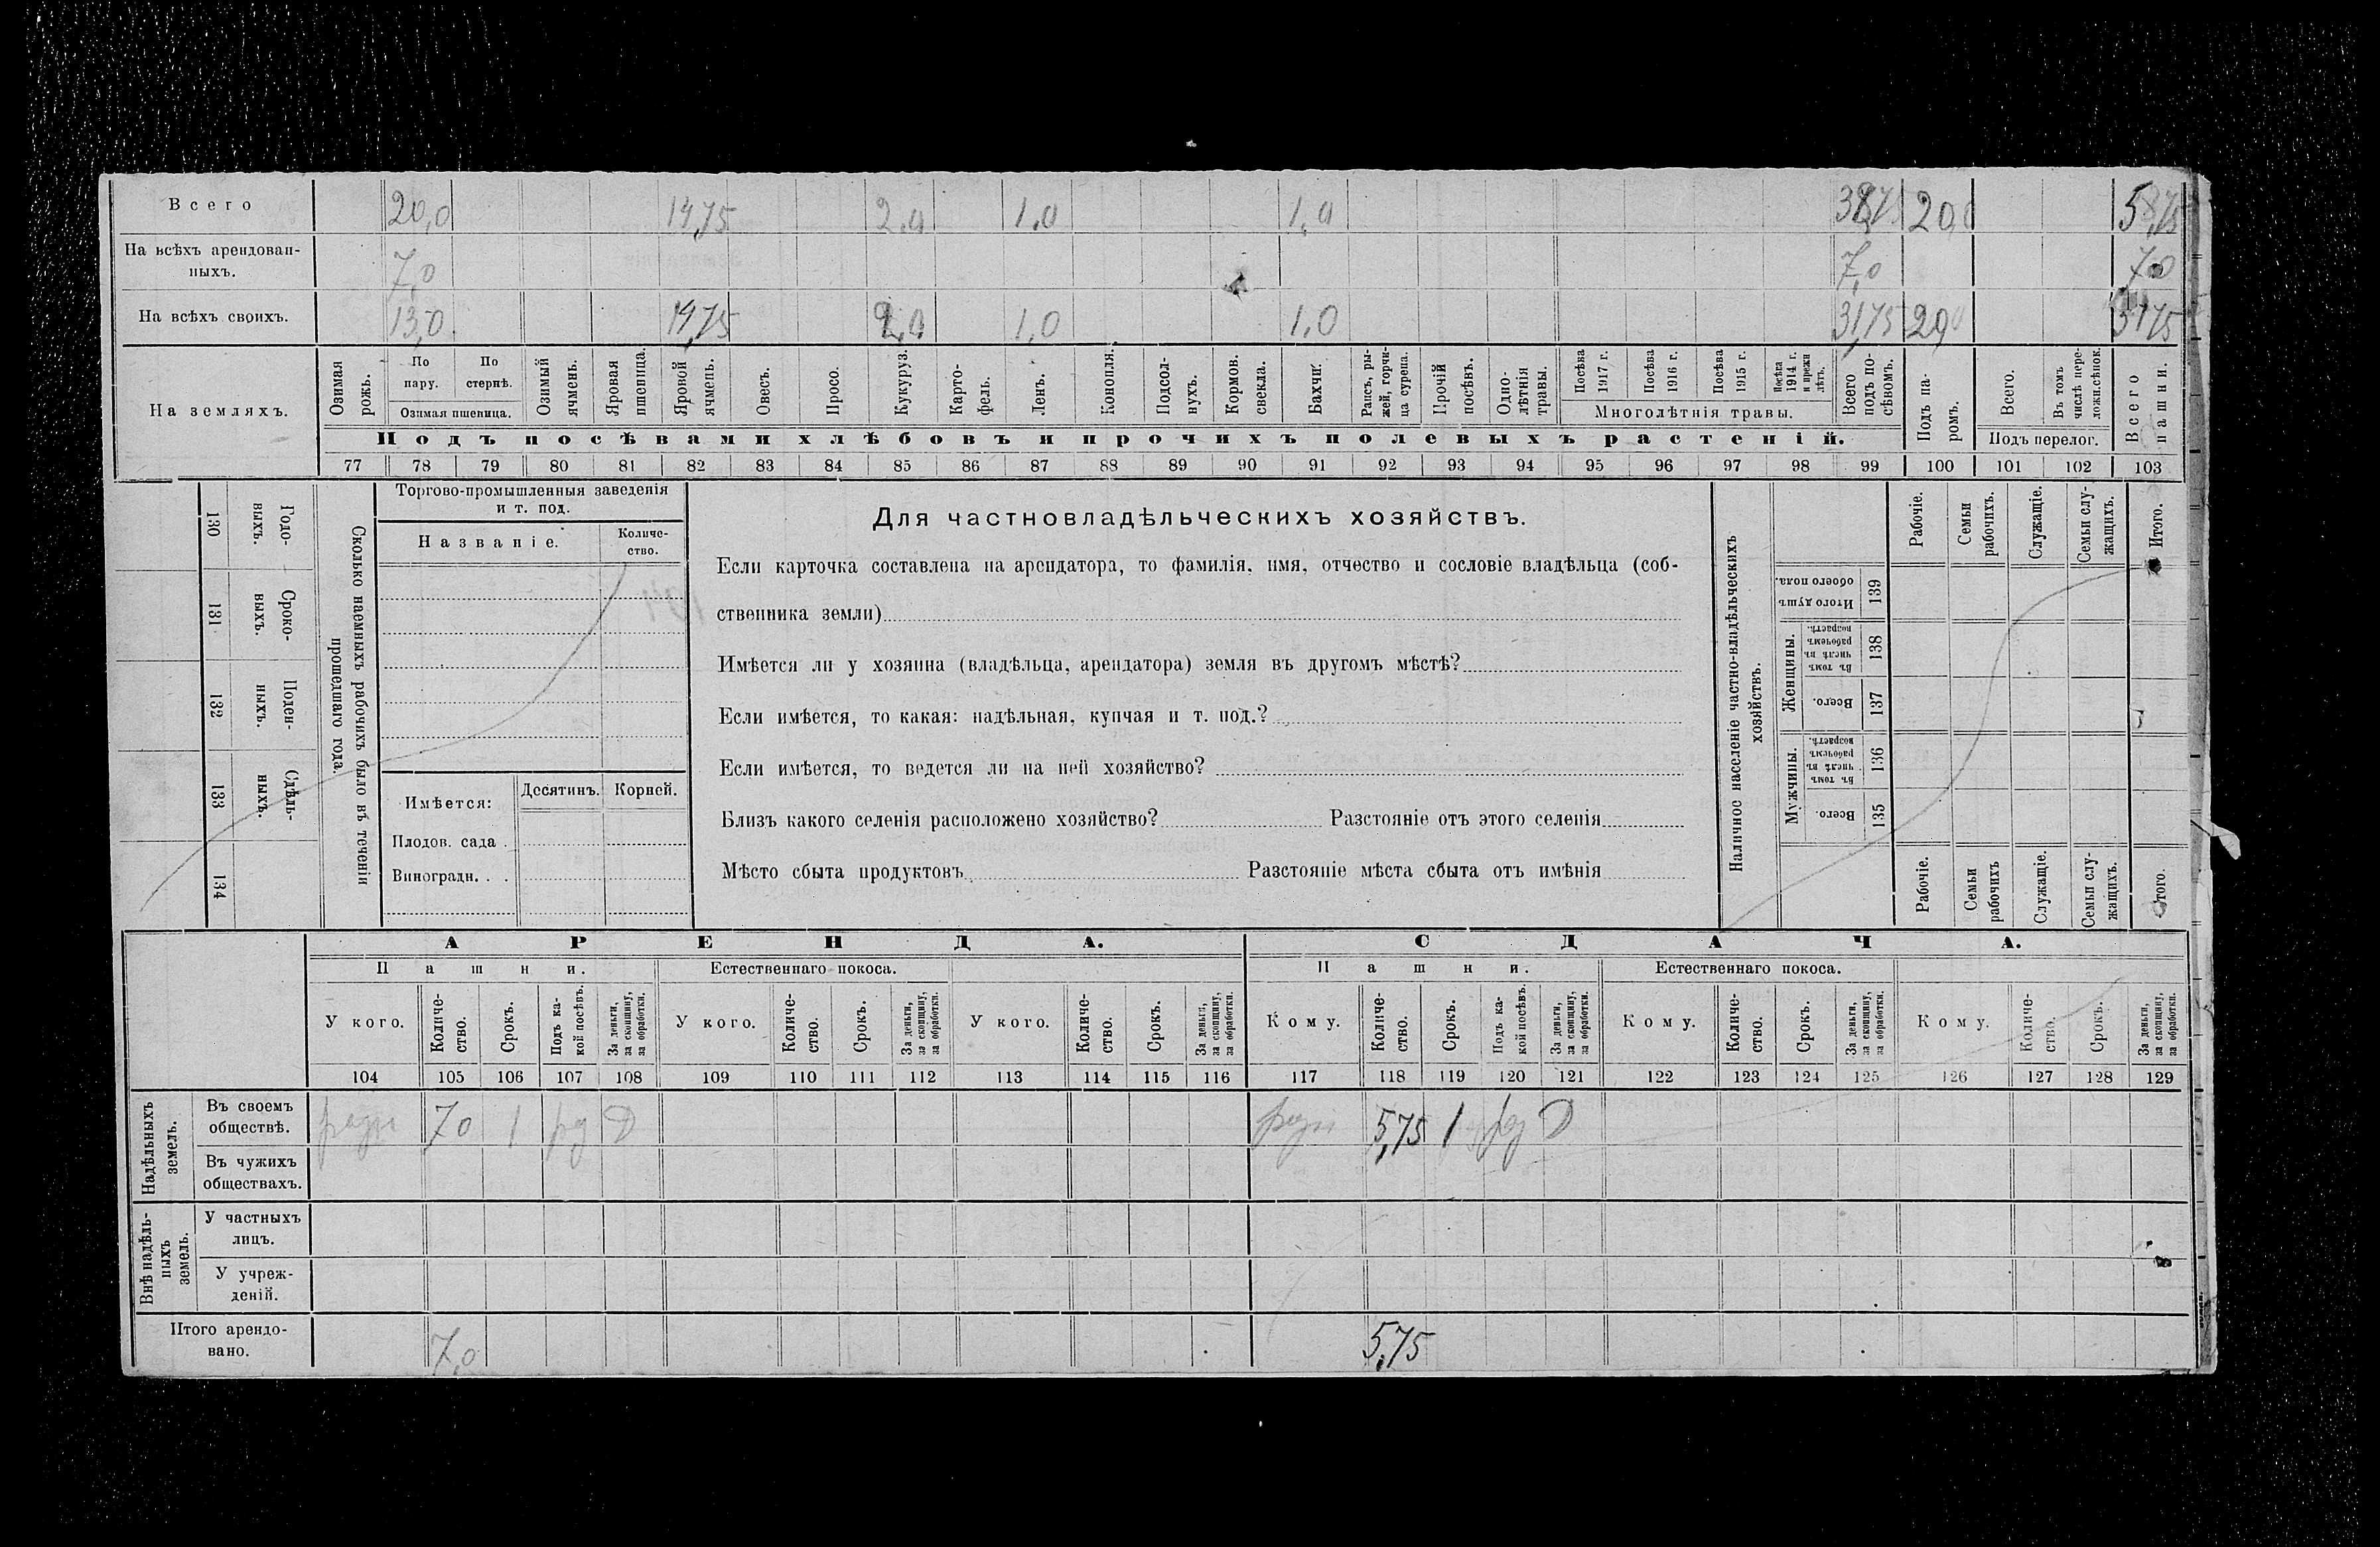 Всего 20,0 14,75 2,0 1,0 1,0 38,75 20,0 58,75
На всѣхъ арендован-
ныхъ. 7,0 7,0 7,0
На всѣхъ своихъ. 13,0 2,0 1,0 1,0 31,75 20,0 51,75
На земляхъ.
Озимая рожь.
По пару.
По стернѣ.
Озимая пшеница.
Озимый ячмень.
Яровая пшеница.
Яровой ячмень.
Овесъ.
Просо.
Кукуруз.
Карто-
фель.
Ленъ.
Конопля.
Подсол-
нухъ.
Кормов.
свекла.
Бахчи.
Рапсъ, ры-
жей, горчи-
ца сурепа.
Прочій
посѣвъ.
Одно-
лѣтнія
травы.
Посѣва 1917 г.
Посѣва 1916 г.
Посѣва 1915 г.
Посѣва 1914 г. и прежн лѣтъ.
Многолѣтнія травы.
Всего
подъ по-
сѣвомъ.
Подъ па-
ромъ.
Всего.
Въ томъ
числѣ пере-
ложн.сѣнок.
Подъ перелог.
Всего пашни.
Подъ посѣвами хлѣбовъ и прочихъ полевыхъ растеній.
77 78 79 80 81 82 83 84 85 86 87 88 89 90 91 92 93 94 95 96 97 98 99 100 101 102 103
130 Годо-
выхъ.
131 Сроко-
выхъ.
132 Поден-
ныхъ.
133 Сдѣль-
ныхъ.
134
Сколько наемныхъ рабочихъ было въ теченіи
прошедшаго года.
Торгово-промышленныя заведенія
и т. под.
Названіе.
Количе-
ство.
Имѣется:
Десятинъ.
Корней.
Плодов. сада .
Виноградн. . .
Для частновладѣльческихъ хозяйствъ.
Если карточка составлена на арендатора, то фамилія, имя, отчество и сословіе владѣльца (соб-
ственника земли)
Имѣется ли у хозяина (владѣльца, арендатора) земля въ другомъ мѣстѣ?
Если имѣется, то какая: надѣльная, купчая и т. под.?
Если имѣется, то ведется ли на ней хозяйство?
Близъ какого селенія расположено хозяйство? Разстояніе отъ этого селенія
Мѣсто сбыта продуктовъ Разстояніе мѣста сбыта отъ имѣнія
Наличное населеніе частно-владѣльческихъ
хозяйствъ.
Рабочіе.
Семьи рабочихъ.
Служащіе.
Семьи слу-
жащихъ.
Итого.
Итого душъ
обоего пола.
139
Женщины.
Въ томъ
числѣ въ
рабочемъ
возрастѣ.
138
Всего.
137
Мужчины.
Въ томъ
числѣ въ
рабочемъ
возрастѣ.
136
Всего.
135
Рабочіе.
Семьи рабочихъ
Служащіе.
Семьи слу-
жащихъ.
Итого.
АРЕНДА. СДАЧА.
Пашни. Естественнаго покоса. Пашни. Естественнаго покоса.
У кого.
Количе-
ство.
Срокъ.
Подъ ка-
кой посѣвъ.
За деньги,
за скопщину,
за обработки.
У кого.
Количе-
ство.
Срокъ.
За деньги,
за скопщину,
за обработки.
У кого.
Количе-
ство.
Срокъ.
За деньги,
за скопщину,
за обработки.
Кому.
Количе-
ство.
Срокъ.
Подъ ка-
кой посѣвъ.
За деньги,
за скопщину,
за обработки.
Кому.
Количе-
ство.
Срокъ.
За деньги,
за скопщину,
за обработки.
Кому.
Количе-
ство.
Срокъ.
За деньги,
за скопщину,
за обработки.
104 105 106 107 108 109 110 111 112 113 114 115 116 117 118 119 120 121 122 123 124 125 126 127 128 129
Надѣльныхъ
земель.
Въ своемъ
обществѣ. 70 1 Д 5,75 1 Д
Въ чужихъ
обществахъ.
Внѣ надѣль-
ныхъ
земель.
У частныхъ
лицъ.
У учреж-
деній.
Итого арендо-
вано. 7,0 5,75